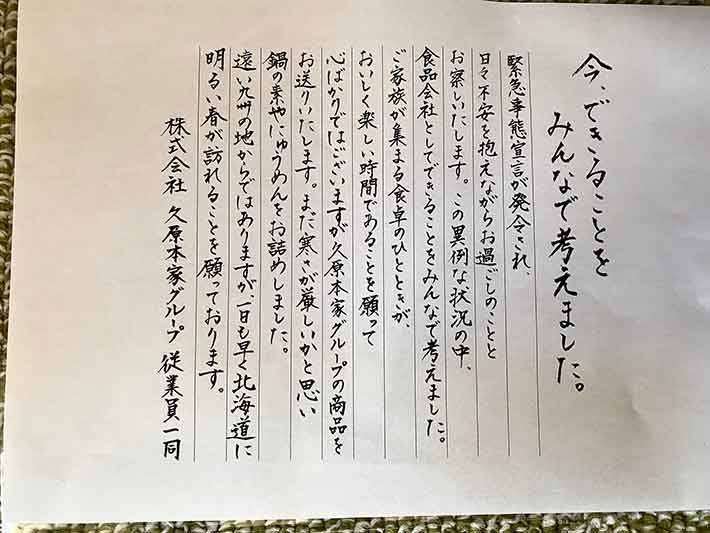 今、できることを
みんなで考えました。
緊急事態宣言が発令され、
日々不安を抱えながらお過ごしのことと
お察しいたします。この異例な状況の中、
食品会社としてできることをみんなで考えました。
ご家族が集まる食卓のひとときが、
おいしく楽しい時間であることを願って
心ばかりではございますが久原本家グループの商品を
お送りいたします。まだ寒さが厳しいかと思い
鍋の素やにゅうめんをお詰めしました。
遠い九州の地からではありますが、一日も早く北海道に
明るい春が訪れることを願っております。
株式会社 久原本家グループ 従業員一同